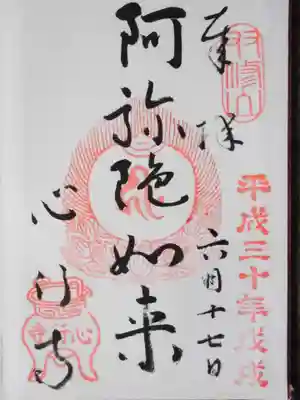 平成三十年戊戌
奉拝
六月十七日
阿弥陀如来
心行寺